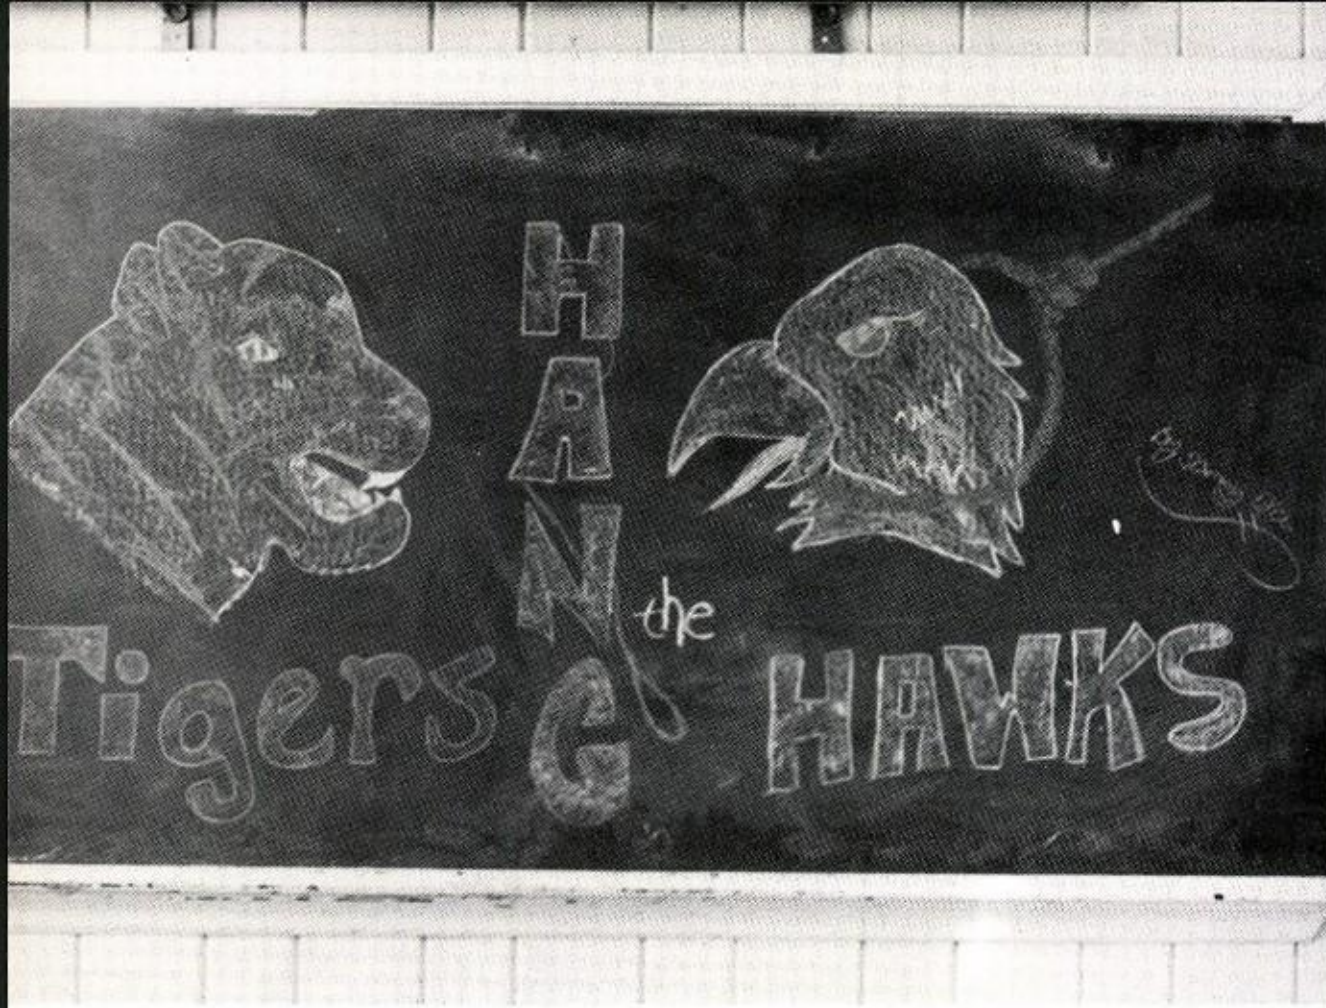 Tigers
HANG
the
HAWKS
by